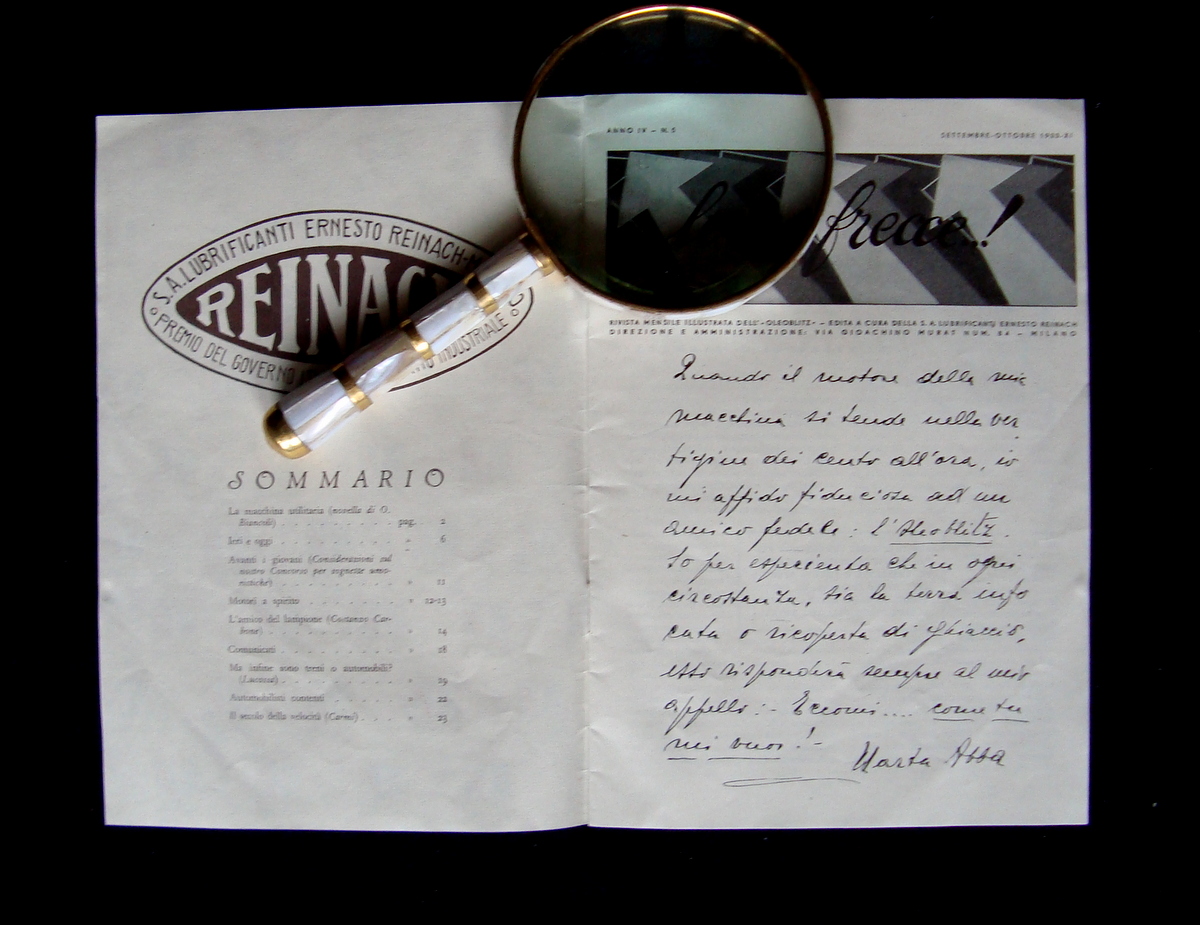 S.A. LUBRIFICANTI ERNESTO REINACH
REINAC
PREMIO DEL GOVERNO INDUSTRIALE
SOMMARIO
La macchina utilitaria (novella di O.
Biancoli) . . . . . . . . pag. 2
Ieri e oggi . . . . . . . . » 6
Avanti i giovani (Considerazioni sul
nostro Concorso per vignette umo-
ristiche) . . . . . . . . » 11
Motori a spirito . . . . . . . » 12-13
L'amico del lampione (Costanzo Car-
bone) . . . . . . . . » 14
Comunicati . . . . . . . . » 18
Ma infine sono treni o automobili?
(Lucassi) . . . . . . . . » 19
Automobilisti contenti . . . . . » 22
Il secolo della velocità (Carmi) . . . » 23
ANNO IV - N. 5
SETTEMBRE-OTTOBRE
frecce..!
RIVISTA MENSILE ILLUSTRATA DELL'«OLEOBLITZ» - EDITA A CURA DELLA S. A. LUBRIFICANTI ERNESTO REINACH
DIREZIONE E AMMINISTRAZIONE: VIA GIOACHINO MURAT NUM. 84 - MILANO
Quando il motore della mia
macchina si tende nella ver
tigine dei cento all'ora, io
mi affido fiduciosa ad un
amico fedele: l'Oleoblitz.
So per esperienza che in ogni
circostanza, sia la terra info
cata o ricoperta di ghiaccio,
esso risponderà sempre al mio
appello: - Eccomi.... come tu
mi vuoi! -
Marta Abba